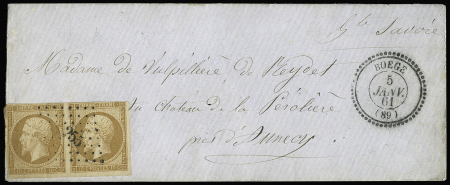 Hte Savoie
Madame de Vulpillière de Pleydet
au château de la Pérolière
près d'Annecy
BOËGE
5
JANV.
61
(89)